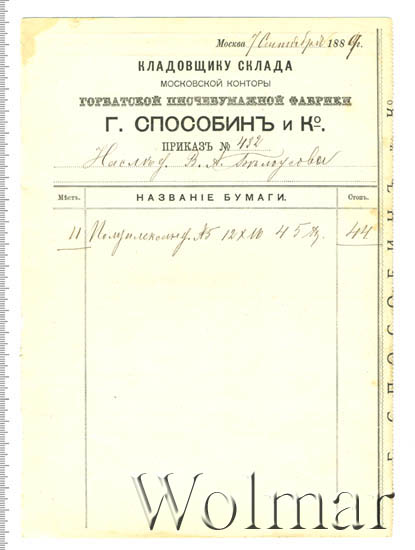 Москва 7 Сентября 1886 г.
КЛАДОВЩИКУ СКЛАДА
МОСКОВСКОЙ КОНТОРЫ
ГОРБАТСКОЙ ПИСЧЕБУМАЖНОЙ ФАБРИКИ
Г. СПОСОБИНЪ и Ко.
ПРИКАЗЪ № 432
Наслед. В. А. Белоусова
Мѣстъ. НАЗВАНІЕ БУМАГИ. Стопъ.
11 №5 12 45 44
Г. СПОСОБИНЪ и Ко
Wolmar